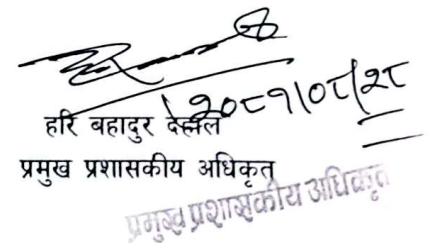 २०८१/०८/२८
हरि बहादुर
प्रमुख प्रशासकीय अधिकृत
प्रमुख प्रशासकीय अधिकृत